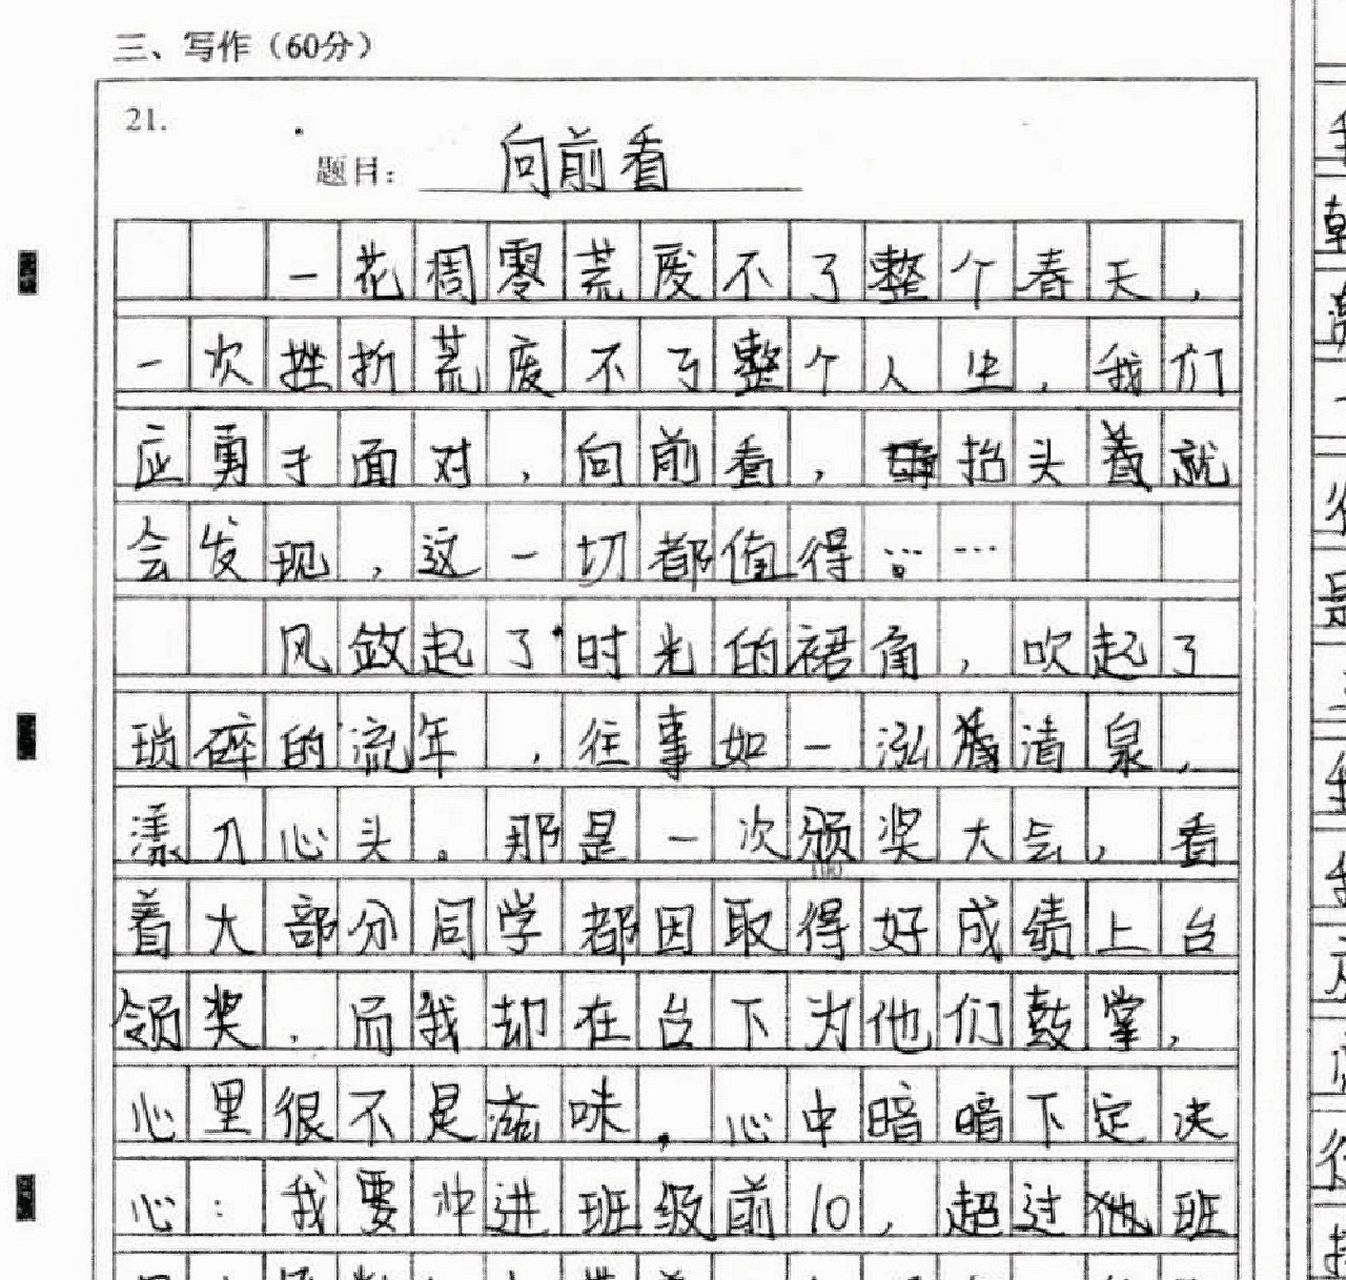 三、写作（60分）
21.
题目：向前看
一花周零荒废不了整个春天，
一次挫折荒废不了整个人生，我们
应勇于面对，向前看，抬头着就
会发现，这一切都值得……
风敛起了时光的裙角，吹起了
琐碎的流年，往事如一泓清泉，
漾入心头。那是一次颁奖大会，看
着大部分同学都因取得好成绩上台
领奖，而我却在台下为他们鼓掌，
心里很不是滋味，心中暗暗下定决
心：我要冲进班级前10，超过他班